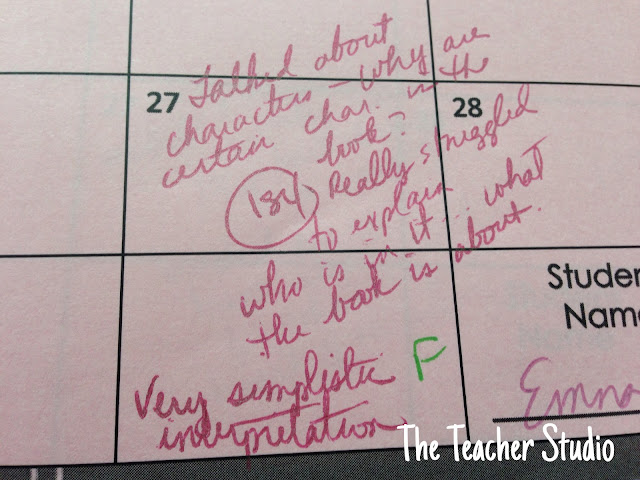 27 Talked about
characters - Why are
certain char. in the
book?
28
184 Really struggled
to explain
who is in it... what
the book is about.
Very simplistic F
interpretation.
Studen
Name
Emma
The Teacher Studio